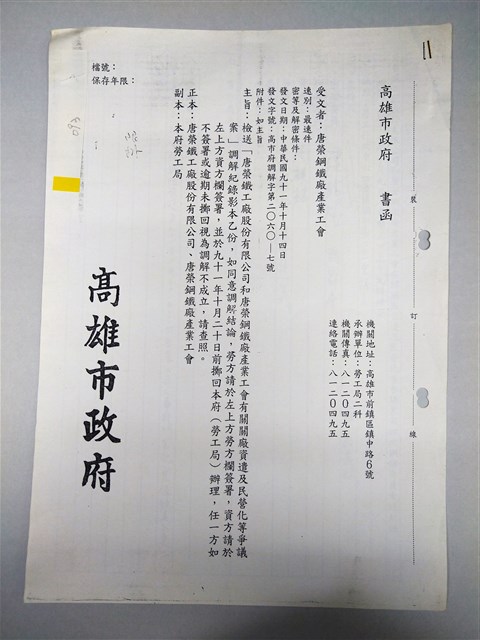 檔號：
保存年限：
高雄市政府　書函
機關地址：高雄市前鎮區鎮中路6號
承辦單位：勞工局二科
機關傳真：八一二０四九五
連絡電話：八一二０四九五
受文者：唐榮鋼鐵廠產業工會
速別：最速件
密等及解密條件：
發文日期：中華民國九十一年十月十四日
發文字號：高市府調解字第二０六０一七號
附件：如主旨
主旨：檢送「唐榮鐵工廠股份有限公司和唐榮鋼鐵廠產業工會有關關廠資遣及民營化等爭議
案」調解紀錄影本乙份，如同意調解結論，勞方請於左上方勞方欄簽署，資方請於
左上方資方欄簽署，並於九十一年十月二十日前擲回本府（勞工局）辦理，任一方如
不簽署或逾期未擲回視為調解不成立，請查照。
正本：唐榮鐵工廠股份有限公司、唐榮鋼鐵廠產業工會
副本：本府勞工局
高雄市政府
裝
訂
線